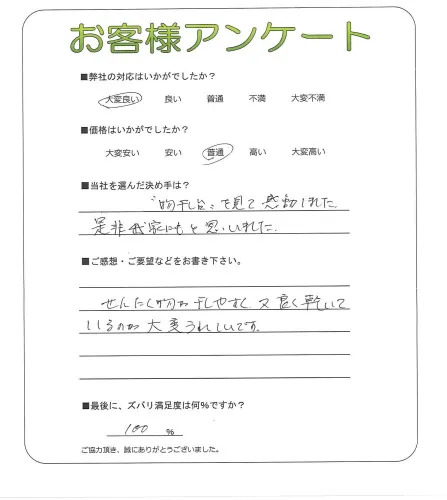 お客様アンケート
■弊社の対応はいかがでしたか?
大変良い 良い 普通 不満 大変不満
■価格はいかがでしたか?
大変安い 安い 普通 高い 大変高い
■当社を選んだ決め手は?
"物干し台"を見て感動しました
是非我家にもと思いました.
■ご感想・ご要望などをお書き下さい。
せんたく物が干しやすく又良く乾いて
いるのが大変うれしいです。
■最後に、ズバリ満足度は何%ですか?
100 %
ご協力頂き、誠にありがとうございました。